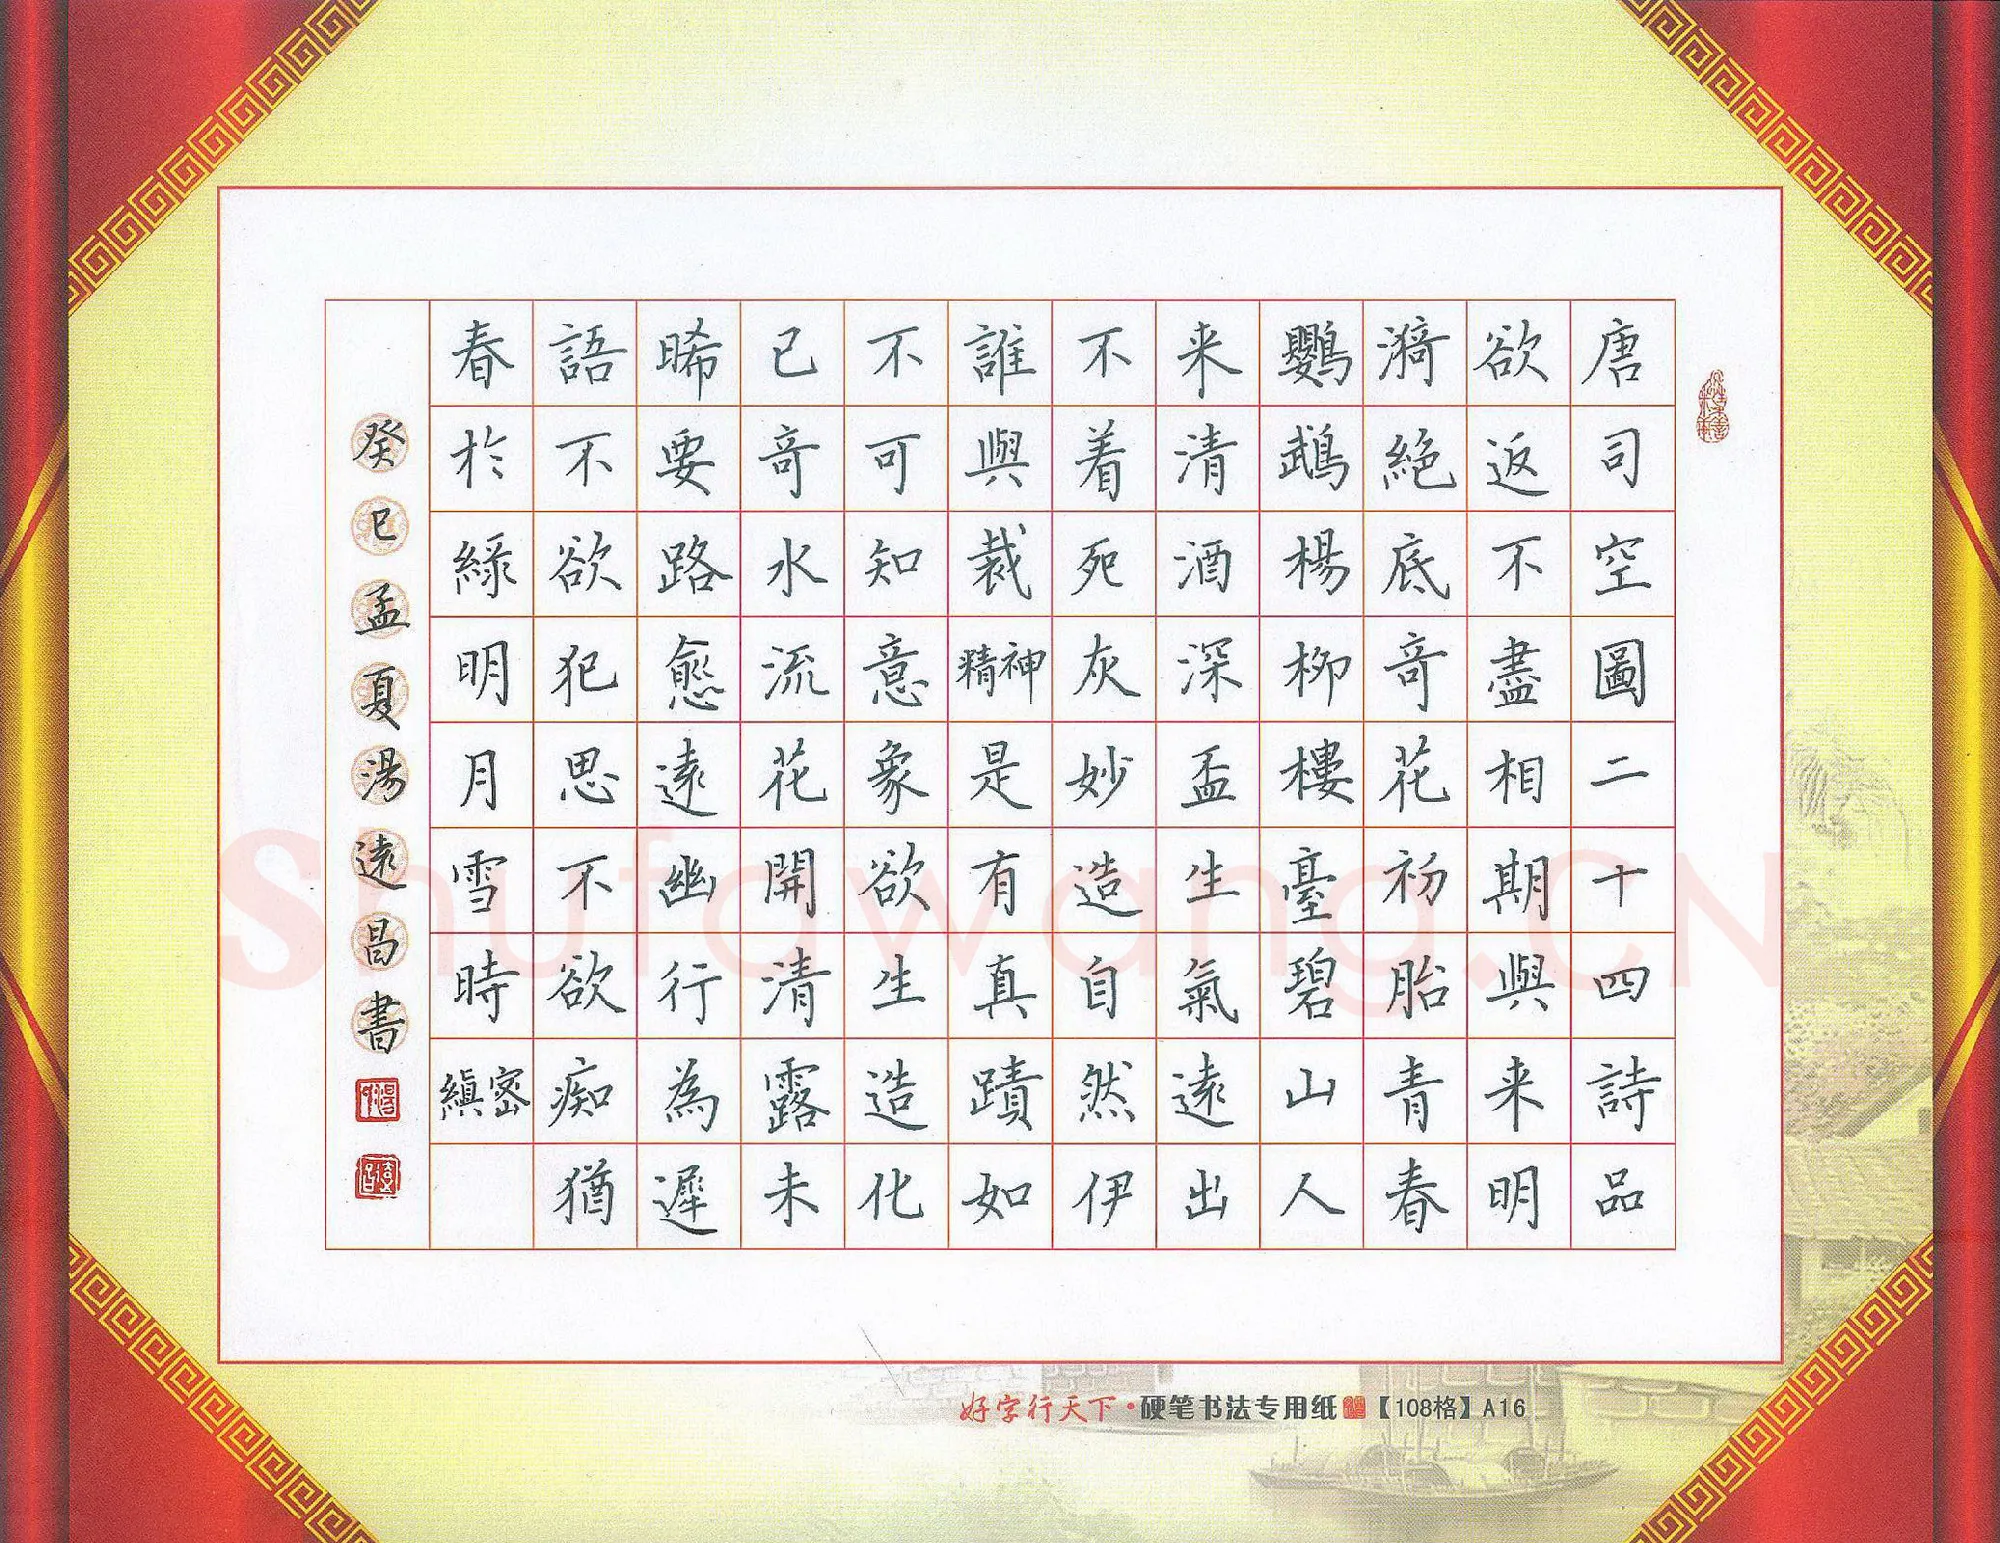 唐司空圖二十四詩品
欲返不盡相期與来明
漪絕底竒花初胎青春
鸚鵡楊柳樓臺碧山人
来清酒深盃生氣遠出
不着死灰妙造自然伊
誰與裁精神是有真蹟如
不可知意象欲生造化
已竒水流花開清露未
晞要路愈遠幽行為遲
語不欲犯思不欲痴猶
春於綠明月雪時縝密
癸巳孟夏湯遠昌書
好字行天下·硬笔书法专用纸【108格】A16
Shufawang.CN